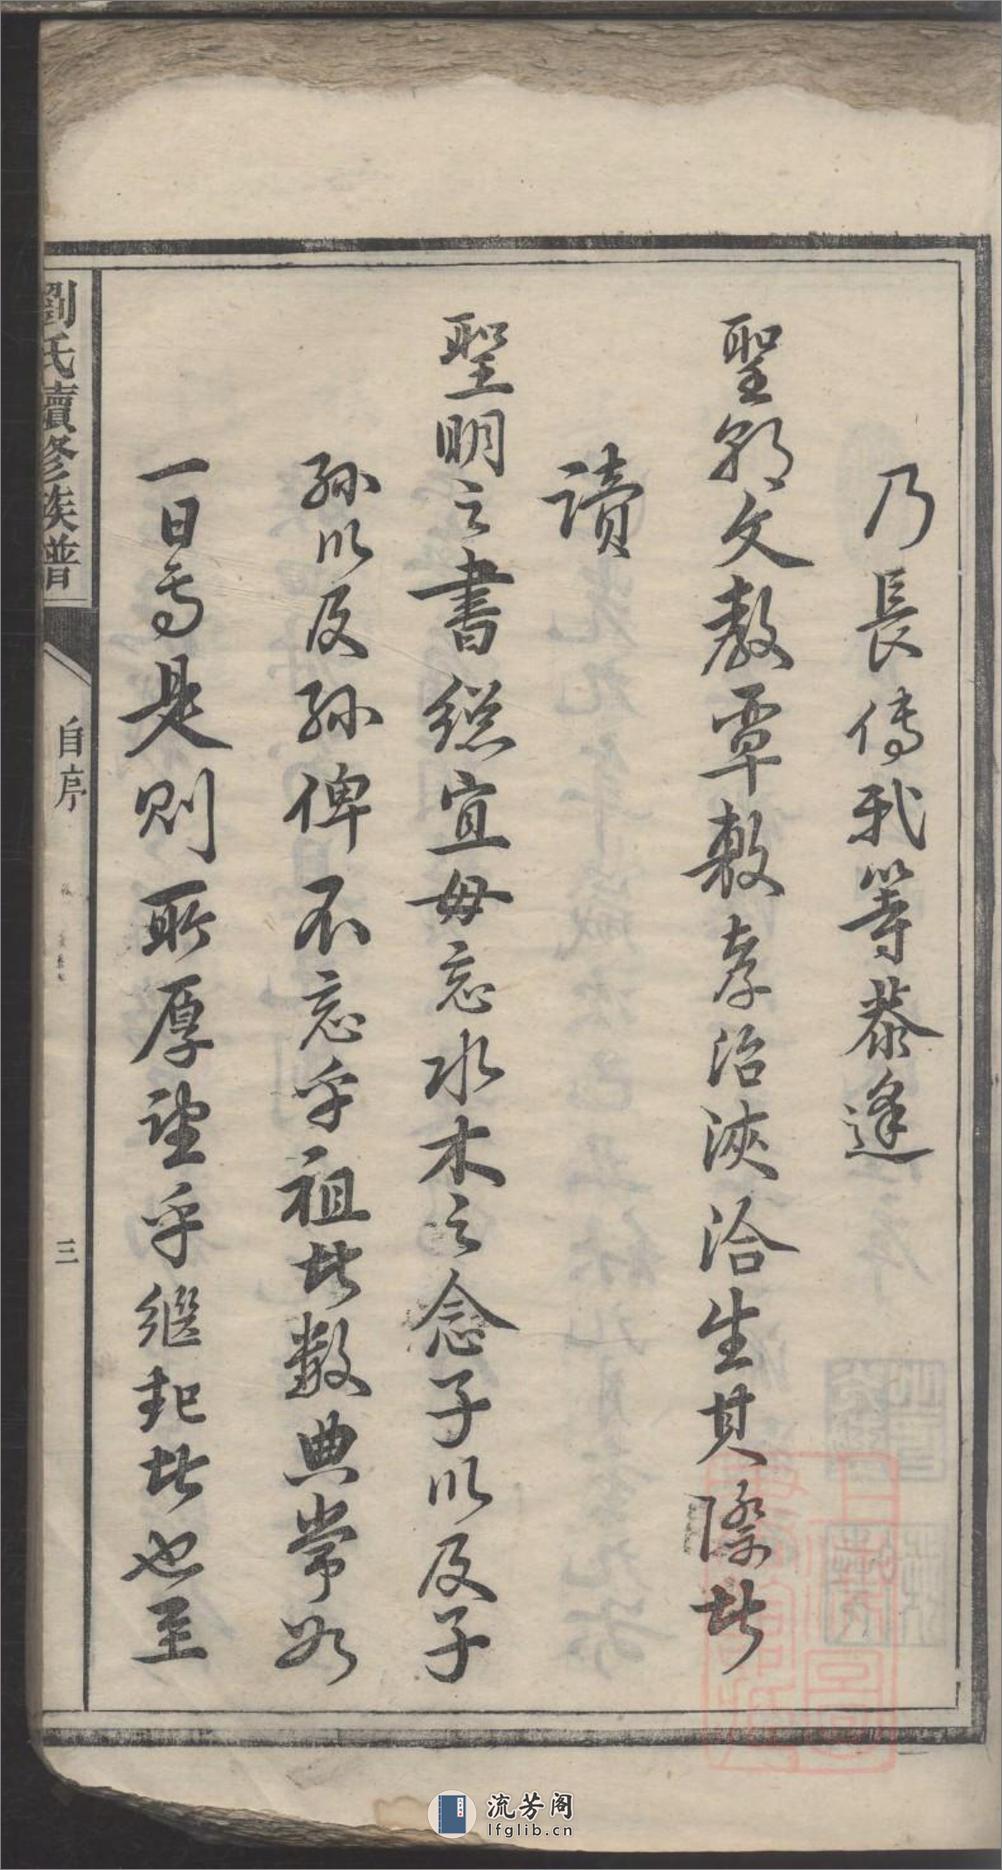 乃長傳我等恭逢
聖朝文教覃敷孝治浹洽生其際者
讀
聖明之書總宜毋忘水木之念子以及子
孫以及孫俾不忘乎祖者數典常如
一日焉是則所厚望乎繼起者也至
劉氏續修族譜
自序
三
流芳阁
lfglib.cn